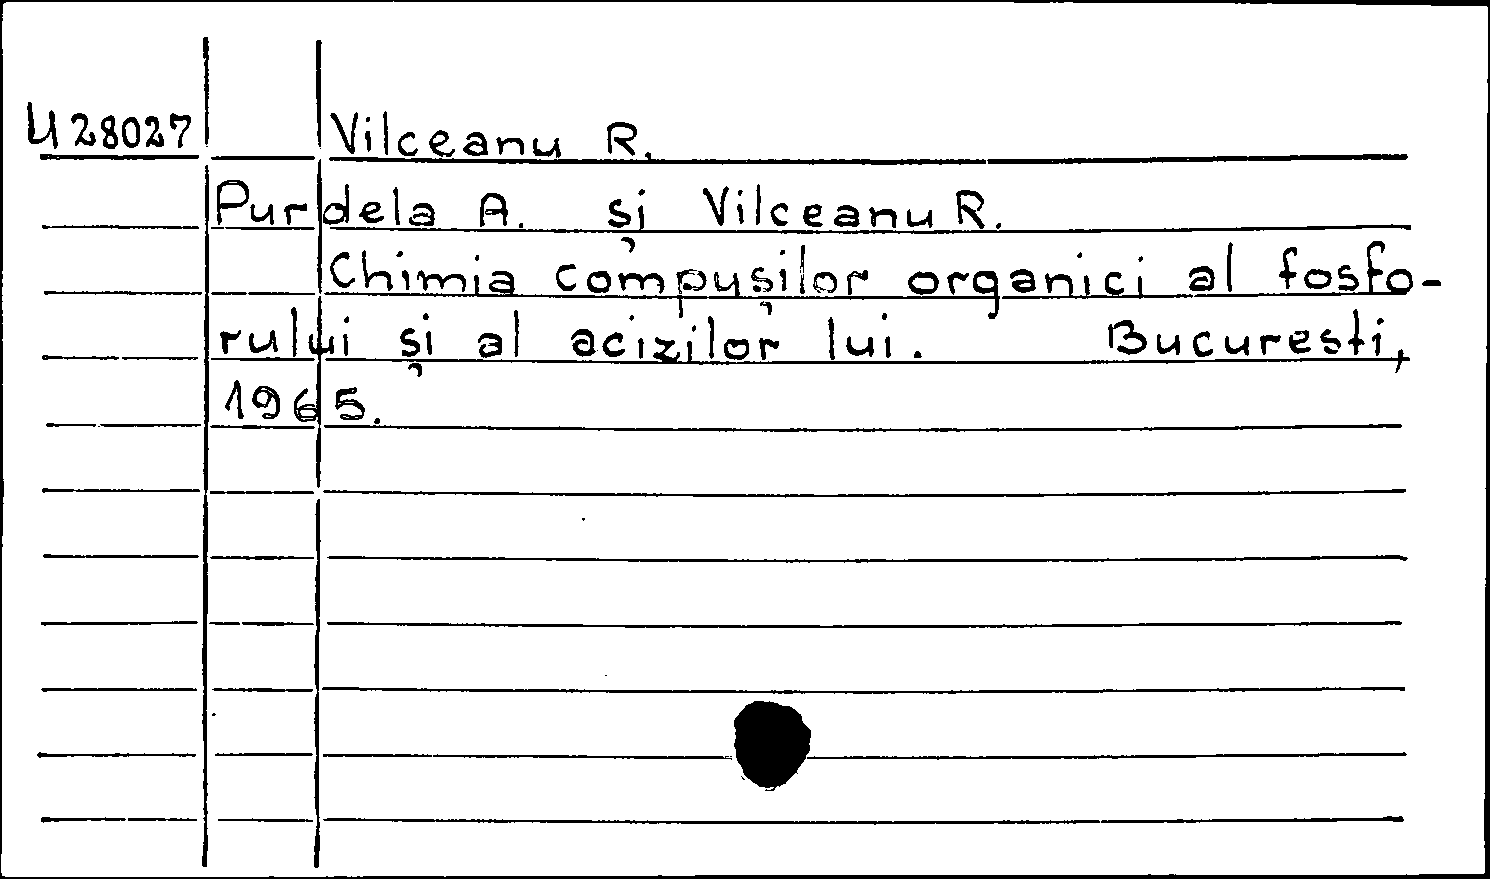 U 28027 Vilceanu R.
Purdela A. și Vilceanu R.
Chimia compușilor organici al fosfo-
rului și al acizilor lui. Bucuresti,
1965.